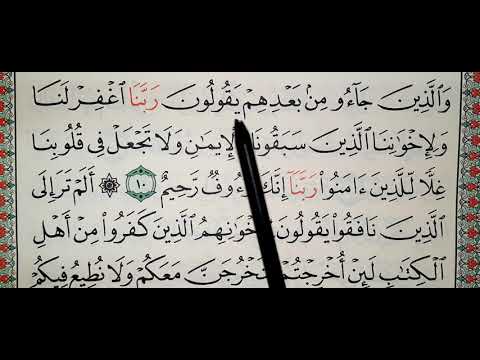 وَالَّذِينَ جَاءُو مِنْ بَعْدِهِمْ يَقُولُونَ رَبَّنَا اغْفِرْ لَنَا
وَلِإِخْوَانِنَا الَّذِينَ سَبَقُونَا بِالْإِيمَانِ وَلَا تَجْعَلْ فِي قُلُوبِنَا
غِلًّا لِّلَّذِينَ ءَامَنُوا رَبَّنَا إِنَّكَ رَءُوفٌ رَّحِيمٌ ١٠ ۞ أَلَمْ تَرَ إِلَى
الَّذِينَ نَافَقُوا يَقُولُونَ لِإِخْوَانِهِمُ الَّذِينَ كَفَرُوا مِنْ أَهْلِ
الْكِتَابِ لَئِنْ أُخْرِجْتُمْ لَنَخْرُجَنَّ مَعَكُمْ وَلَا نُطِيعُ فِيكُمْ